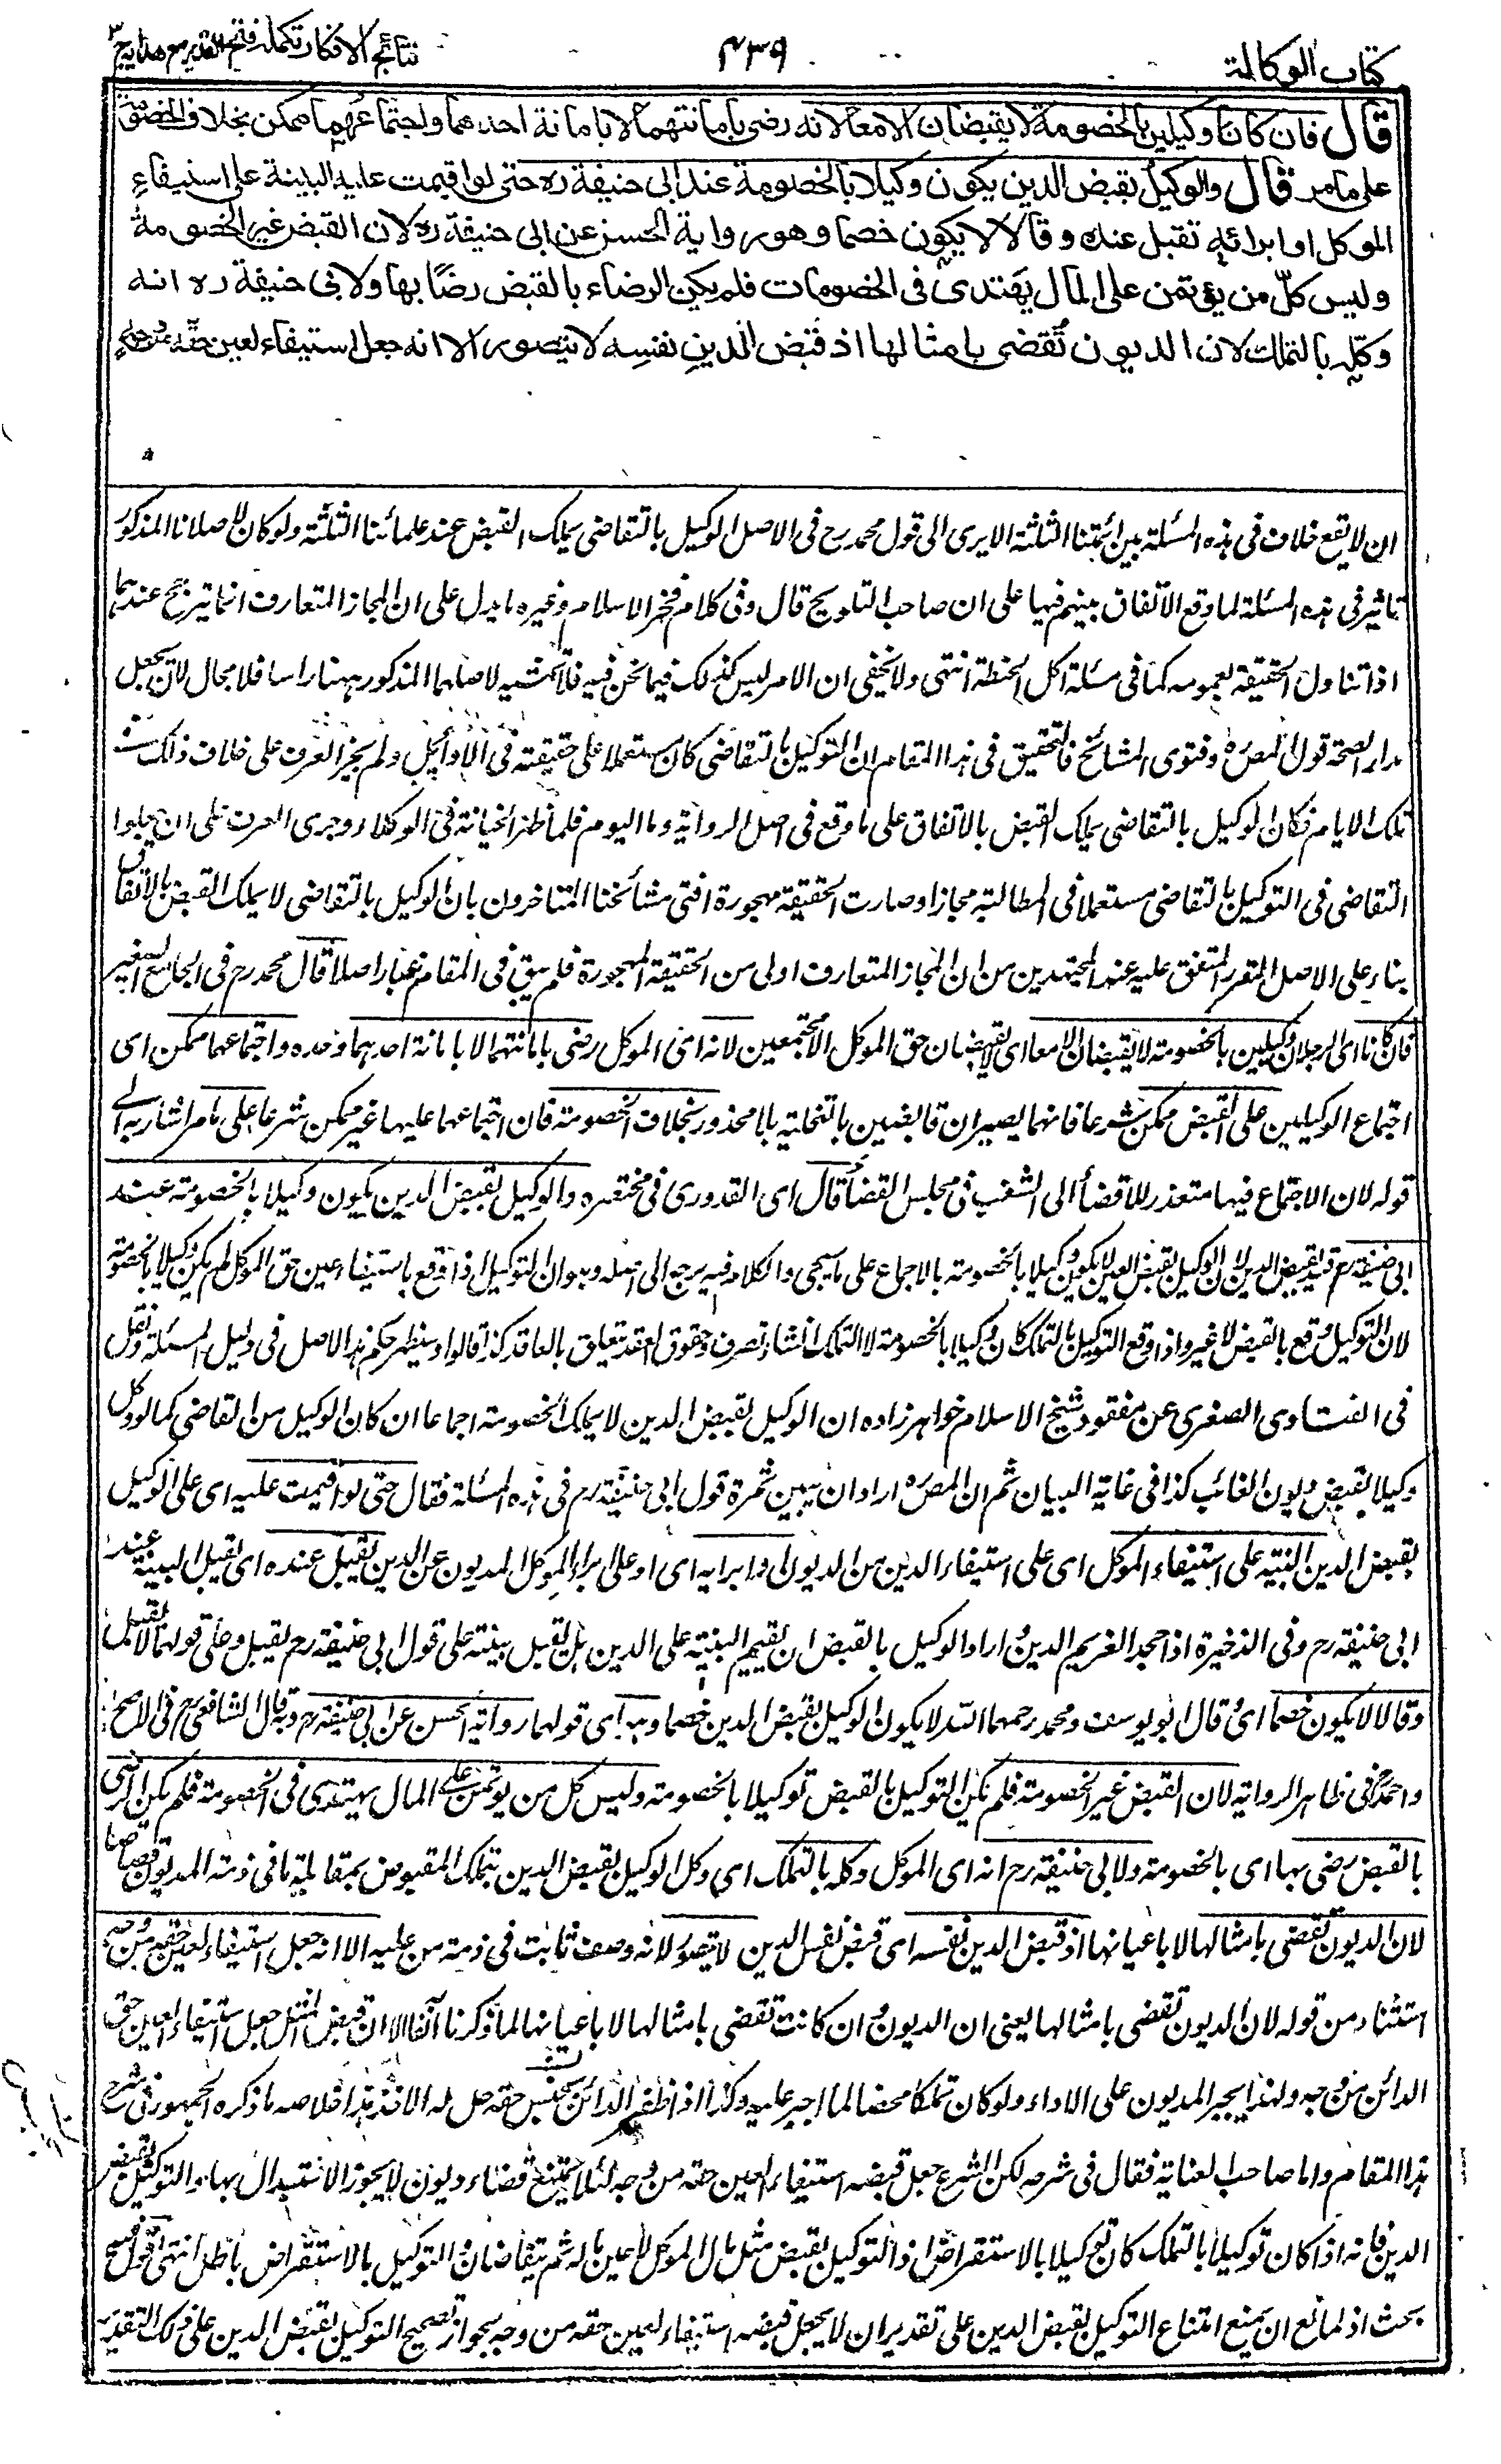 كتاب الوكالة
٤٣٩
نتائج الافكار تكملة فتح القدير مع هداية ج ٣
قال فان كانا وكيلين بالخصومة لا يقبضان الا معا لانه رضى بامانتهما لا بامانة احدهما واجتماعهما ممكن بخلاف الخصومة
على ما مر قال والوكيل بقبض الدين يكون وكيلا بالخصومة عند ابى حنيفة ره حتى لو اقيمت عليه البينة على استيفاء
الموكل او ابرائه تقبل عنده وقالا لا يكون خصما وهو رواية الحسن عن ابى حنيفة ره لان القبض غير الخصومة
وليس كلّ من يؤتمن على المال يهتدى فى الخصومات فلم يكن الرضاء بالقبض رضًا بها ولابى حنيفة ره انه
وكّله بالتملك لان الديون تُقضى بامثالها اذ قبض الدين نفسِه لا يتصور الا انه جعل استيفاء لعين حقّه من وجه
ان لا يقع خلاف فى هذه المسئلة بين ائمتنا الثلثة الا يرى الى قول محمد رح فى الاصل الوكيل بالتقاضى يملك القبض عند علمائنا الثلثة ولو كان لاصلانا المذكور
تاثير فى هذه المسئلة لما وقع الاتفاق بينهم فيها على ان صاحب التلويح قال وفى كلام فخر الاسلام وغيره ما يدل على ان المجاز المتعارف انما يترجح عندهما
اذا تناول الحقيقة بعمومه كما فى مسئلة اكل الحنطة انتهى ولا يخفى ان الامر ليس كذلك فيما نحن فيه فلا تمشية لاصلهما المذكور ههنا راسا فلا مجال لان يجعل
مدار الصحة قول المصره وفتوى المشائخ فالتحقيق فى هذا المقام ان التوكيل بالتقاضى كان مستعملا على حقيقته فى الاوائل ولم يجر العرف على خلاف ذلك فى
تلك الايام فكان الوكيل بالتقاضى يملك القبض بالاتفاق على ما وقع فى اصل الرواية واما اليوم فلما ظهر الخيانة فى الوكلاء وجرى العرف على ان جعلوا
التقاضى فى التوكيل بالتقاضى مستعملا فى المطالبة مجازا وصارت الحقيقة مهجورة افتى مشائخنا المتاخرون بان الوكيل بالتقاضى لا يملك القبض بالاتفاق
بناء على الاصل المقرر المتفق عليه عند المجتهدين من ان المجاز المتعارف اولى من الحقيقة المهجورة فلم يبق فى المقام غبار اصلا قال محمد رح فى الجامع الصغير
فان كانا اى الرجلان وكيلين بالخصومة لا يقبضان الا معا اى لا يقبضان حق الموكل الا مجتمعين لانه اى الموكل رضى بامانتهما لا بامانة احدهما وحده واجتماعهما ممكن اى
اجتماع الوكيلين على القبض ممكن شرعا فانهما يصيران قابضين بالتخلية بلا محذور بخلاف الخصومة فان اجتماعهما عليها غير ممكن شرعا على ما مر اشار به الى
قوله لان الاجتماع فيها متعذر للافضاء الى الشغب فى مجلس القضاء قال اى القدورى فى مختصره والوكيل بقبض الدين يكون وكيلا بالخصومة عند
ابى حنيفة رح قيد بقبض الدين لان الوكيل بقبض العين لا يكون وكيلا بالخصومة بالاجماع على ما سيجئ والكلام فيه يرجع الى اصله وهو ان التوكيل اذا وقع باستيفاء عين حق الموكل لم يكن وكيلا بالخصومة
لان التوكيل وقع بالقبض لا غير واذا وقع التوكيل بالتملك كان وكيلا بالخصومة لان التملك انشاء تصرف وحقوق العقد تتعلق بالعاقد كذا قالوا وسيظهر حكم هذا الاصل فى دليل المسئلة ونقل
فى الفتاوى الصغرى عن مفقود شيخ الاسلام خواهر زاده ان الوكيل بقبض الدين لا يملك الخصومة اجماعا ان كان الوكيل من القاضى كما لو وكل
وكيلا بقبض ديون الغائب كذا فى غاية البيان ثم ان المصره اراد ان يبين ثمرة قول ابى حنيفة رح فى هذه المسئلة فقال حتى لو اقيمت عليه اى على الوكيل
بقبض الدين البينة على استيفاء الموكل اى على استيفاء الدين من المديون او ابرائه اى او على ابراء الموكل المديون عن الدين يقبل عنده اى يقبل البينة عند
ابى حنيفة رح وفى الذخيرة اذا جحد الغريم الدين واراد الوكيل بالقبض ان يقيم البينة على الدين هل تقبل بينته على قول ابى حنيفة رح يقبل وعلى قولهما لا يقبل
وقالا لا يكون خصما اى قال ابو يوسف ومحمد رحمهما الله لا يكون الوكيل بقبض الدين خصما وهو اى قولهما رواية الحسن عن ابى حنيفة رح وبه قال الشافعى رح فى الاصح
واحمد رح فى ظاهر الرواية لان القبض غير الخصومة فلم يكن التوكيل بالقبض توكيلا بالخصومة وليس كل من يؤتمن على المال يهتدى فى الخصومة فلم يكن الرضى
بالقبض رضى بها اى بالخصومة ولابى حنيفة رح انه اى الموكل وكله بالتملك اى وكل الوكيل بقبض الدين بتملك المقبوض بمقابلة ما فى ذمة المديون قصاصا
لان الديون تقضى بامثالها لا باعيانها اذ قبض الدين نفسه اى قبض نفس الدين لا يتصور لانه وصف ثابت فى ذمة من عليه الا انه جعل استيفاء لعين حقه من وجه
استثناء من قوله لان الديون تقضى بامثالها يعنى ان الديون وان كانت تقضى بامثالها لا باعيانها لما ذكرنا آنفا الا ان قبض المثل جعل استيفاء لعين حق
الدائن من وجه ولهذا يجبر المديون على الاداء ولو كان تملكا محضا لما اجبر عليه وكذا اذا ظفر الدائن بجنس حقه حل له الاخذ هذا خلاصة ما ذكره الجمهور فى شرح
هذا المقام واما صاحب العناية فقال فى شرحه لكن الشرع جعل قبضه استيفاء لعين حقه من وجه لئلا يمتنع قضاء ديون لا يجوز الاستبدال بها والتوكيل بقبض
الدين فانه اذا كان توكيلا بالتملك كان توكيلا بالاستقراض اذ التوكيل بقبض مثل مال الموكل لا عين ماله ثم يتقاضان والتوكيل بالاستقراض باطل انتهى اقول فيه
بحث اذ لمانع ان يمنع امتناع التوكيل بقبض الدين على تقدير ان لا يجعل قبضه استيفاء لعين حقه من وجه بجواز تصحيح التوكيل بقبض الدين على ذلك التقدير